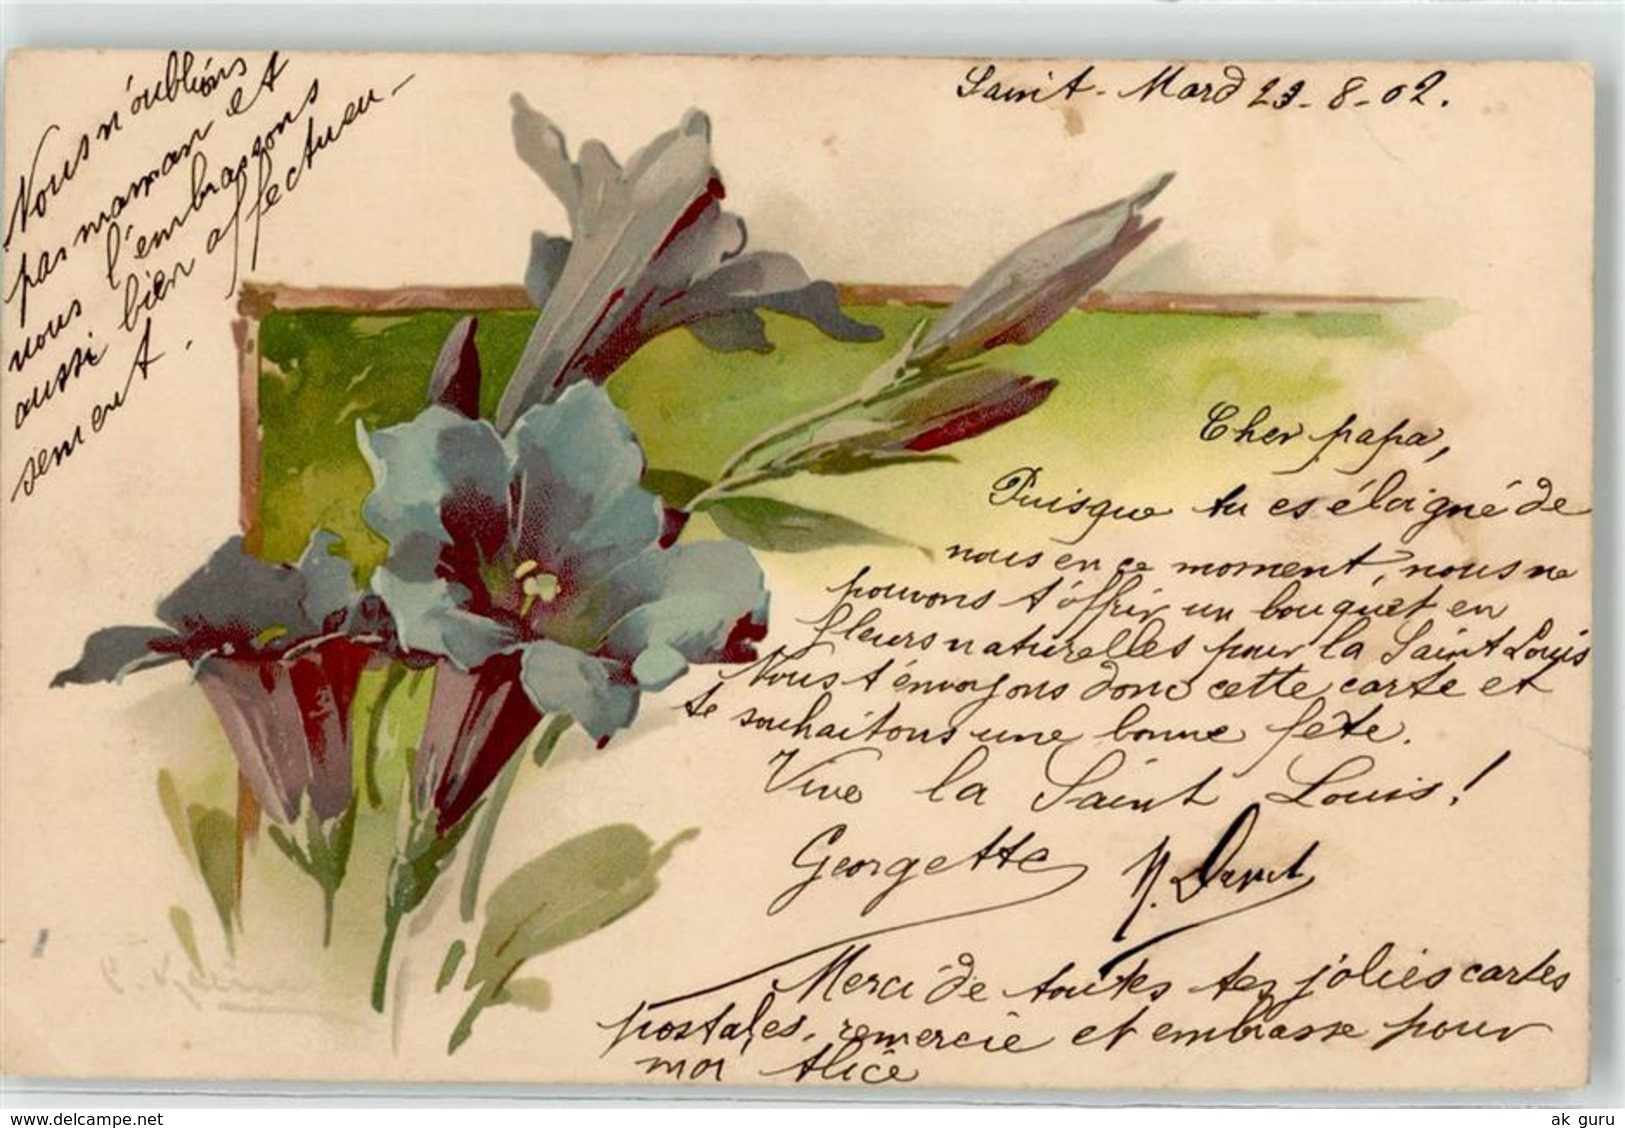 Saint-Mard 23-8-02.
Nous n'oublions
pas maman et
nous l'embrassons
aussi bien affectueu-
sement.
Cher papa,
Puisque tu es éloigné de
nous en ce moment, nous ne
pouvons t'offrir un bouquet en
fleurs naturelles pour la Saint Louis
Nous t'envoyons donc cette carte et
te souhaitons une bonne fête.
Vive la Saint Louis!
Georgette
Merci de toutes tes jolies cartes
postales, remercie et embrasse pour
moi Alice
C. Klein
www.delcampe.net
ak guru